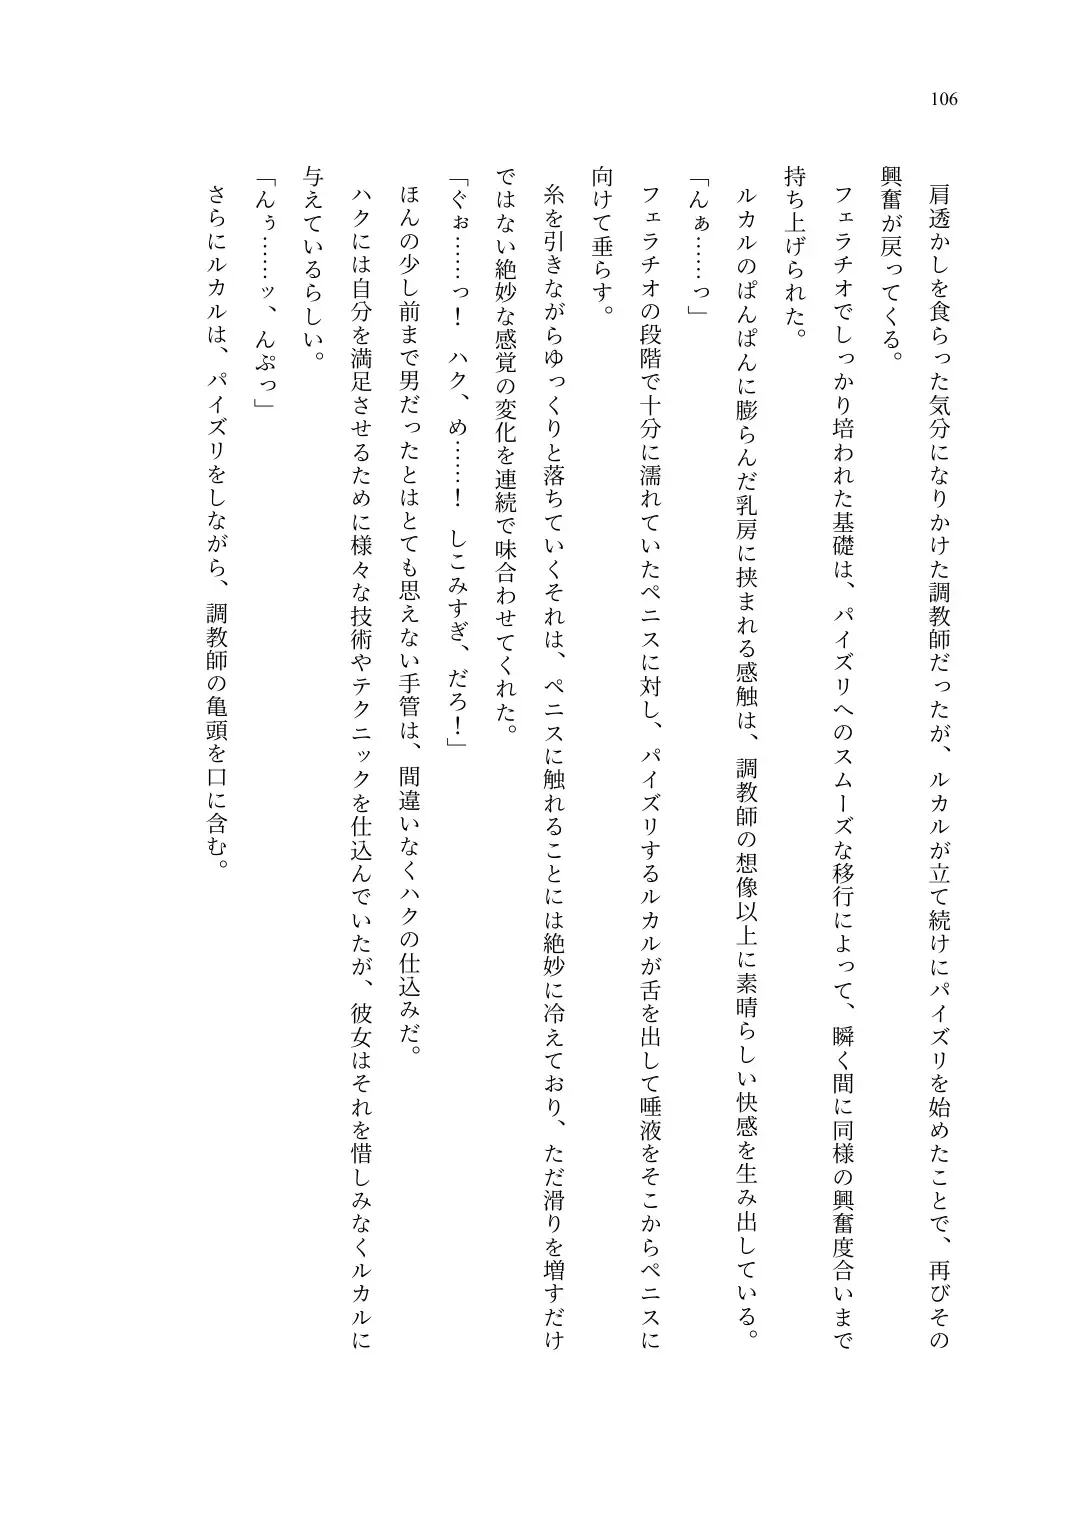 106
肩透かしを食らった気分になりかけた調教師だったが、ルカルが立て続けにパイズリを始めたことで、再びその
興奮が戻ってくる。
フェラチオでしっかり培われた基礎は、パイズリへのスムーズな移行によって、瞬く間に同様の興奮度合いまで
持ち上げられた。
ルカルのぱんぱんに膨らんだ乳房に挟まれる感触は、調教師の想像以上に素晴らしい快感を生み出している。
「んぁ……っ」
フェラチオの段階で十分に濡れていたペニスに対し、パイズリするルカルが舌を出して唾液をそこからペニスに
向けて垂らす。
糸を引きながらゆっくりと落ちていくそれは、ペニスに触れることには絶妙に冷えており、ただ滑りを増すだけ
ではない絶妙な感覚の変化を連続で味合わせてくれた。
「ぐぉ……っ！　ハク、め……！　しこみすぎ、だろ！」
ほんの少し前まで男だったとはとても思えない手管は、間違いなくハクの仕込みだ。
ハクには自分を満足させるために様々な技術やテクニックを仕込んでいたが、彼女はそれを惜しみなくルカルに
与えているらしい。
「んぅ……ッ、んぷっ」
さらにルカルは、パイズリをしながら、調教師の亀頭を口に含む。